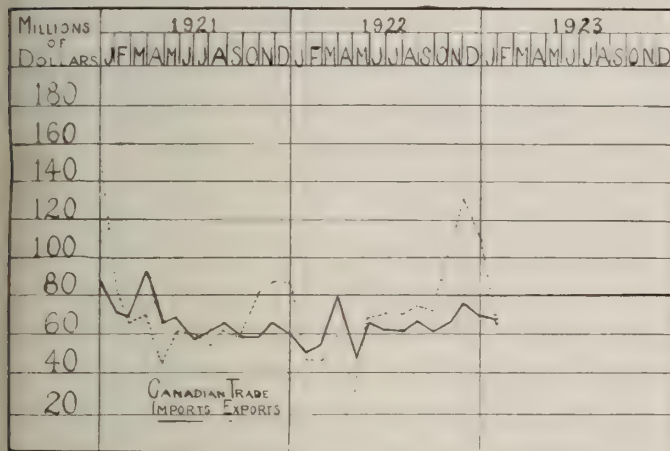 MILLIONS OF DOLLARS
1921 1922 1923
J F M A M J J A S O N D J F M A M J J A S O N D J F M A M J J A S O N D
180
160
140
120
100
80
60
40
20
CANADIAN TRADE
IMPORTS EXPORTS